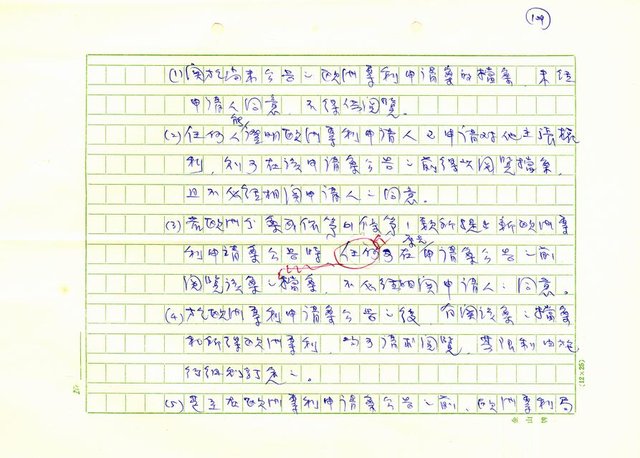 109
(1) 關於尚未公告之歐洲專利申請案的檔案，未經
申請人同意，不得供閱覽。
(2) 任何人能證明歐洲專利申請人已申請對他主張權
利，則可在該申請案公告之前得以閱覽檔案，
且不必經相關申請人之同意。
(3) 若歐洲分案或依第 條第1款所提之新歐洲專
利申請案公告時，任何 可在 申請案公告之前
閱覽該案之檔案，不必經相關申請人之同意。
(4) 於歐洲專利申請案公告之後，有關該案之檔案
和所得歐洲專利，均可請求閱覽，其限制由施
行細則訂定之。
(5) 甚至在歐洲專利申請案公告之前，歐洲專利局
(12×25)
金山